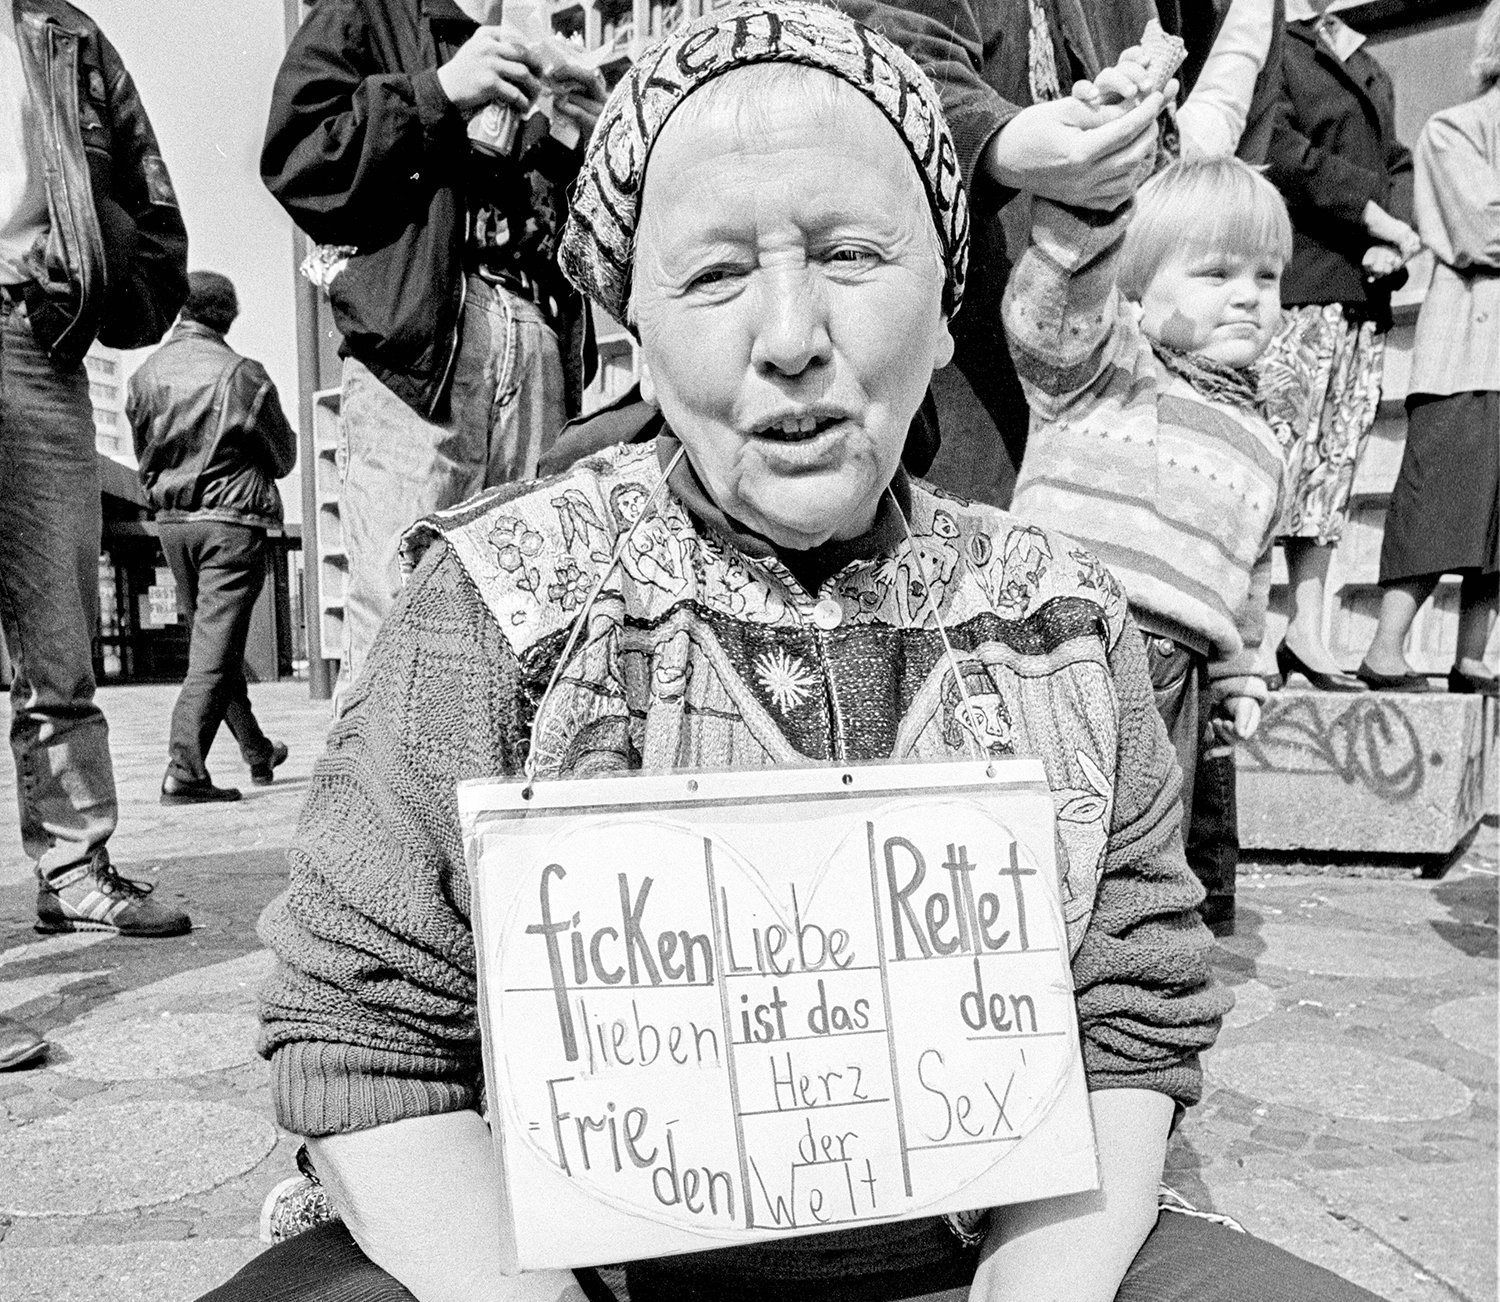 ficken
ficken
lieben
=Frie-
den
Liebe
ist das
Herz
der
Welt
Rettet
den
Sex!